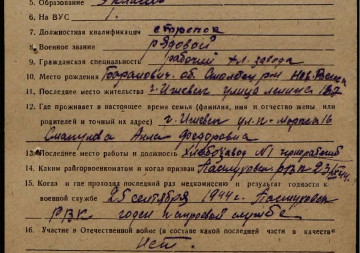 5. Образование
6. На ВУС
7. Должностная квалификация стрелок
8. Военное звание рядовой
9. Гражданская специальность рабочий хл. завода
10. Место рождения Баранович. об.
11. Последнее место жительства г. Ижевск улица Ленина
12. Где проживает в настоящее время семья (фамилия, имя и отчество жены или
родителей и точный их адрес) г. Ижевск ул.
Анна Федоровна
13. Последнее место работы и должность Хлебозавод №1
14. Каким райгорвоенкоматом и когда призван РВК
15. Когда и где проходил последний раз медкомиссию и результат годности к
военной службе 25 сентября 1944 г.
РВК годен к строевой службе
16. Участие в Отечественной войне (в составе какой последней части в качеств
Нет.